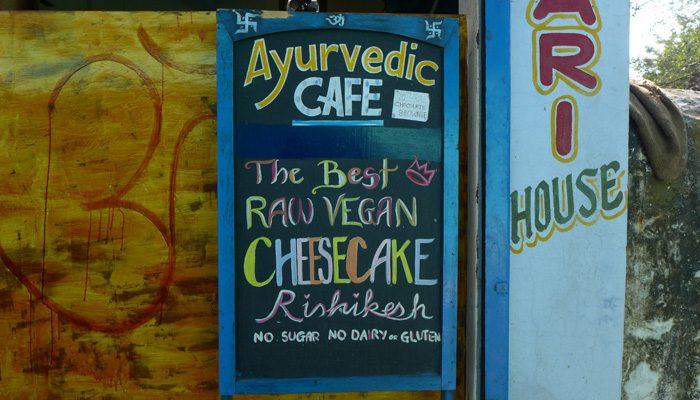 卐 ॐ 卐
Ayurvedic
CAFE
CHOCOLATE
BROWNIE
The Best
RAW VEGAN
CHEESECAKE
Rishikesh
NO SUGAR NO DAIRY or GLUTEN
ARI
HOUSE